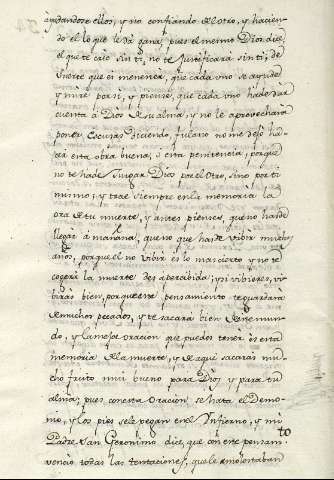 ayudandose ellos, y no confiando del otro, y hacien-
do el lo que le dà gana, pues el mesmo Dios dice,
el que te crio sin ti, no te justificará sin ti, de
suerte que es menester, que cada uno se ayude
y mire por si, y piense, que cada uno ha de dar
cuenta à Dios de su alma, y no le aprovechará
poner escusas diciendo, fulano no me dejo ha-
zer esta obra buena, ò esta penitencia, porque
no te ha de Juzgar Dios por el otro, sino por ti
mismo, y trae siempre en la memoria la
ora de tu muerte, y antes pienses, que no has de
llegar á mañana, que no que has de vibir muchos
años, porque el no vibir es lo mas cierto y no te
cogerá la muerte desapercibida, y si vibieres, vi-
birás bien, porque este pensamiento te guardara
de muchos pecados, y te sacará bien de este mun-
do, y la mejor oracion que puedes tener es esta
memoria de la muerte, y de aqui sacaras mu-
cho fruto mui bueno para Dios, y para tu
alma, pues con esta oracion se hata el Demo-
nio, y los pies se le pegan en el Infierno, y mi
Padre San Geronimo dice, que con este pensam.to
vencio todas las tentaciones, que le molestaban